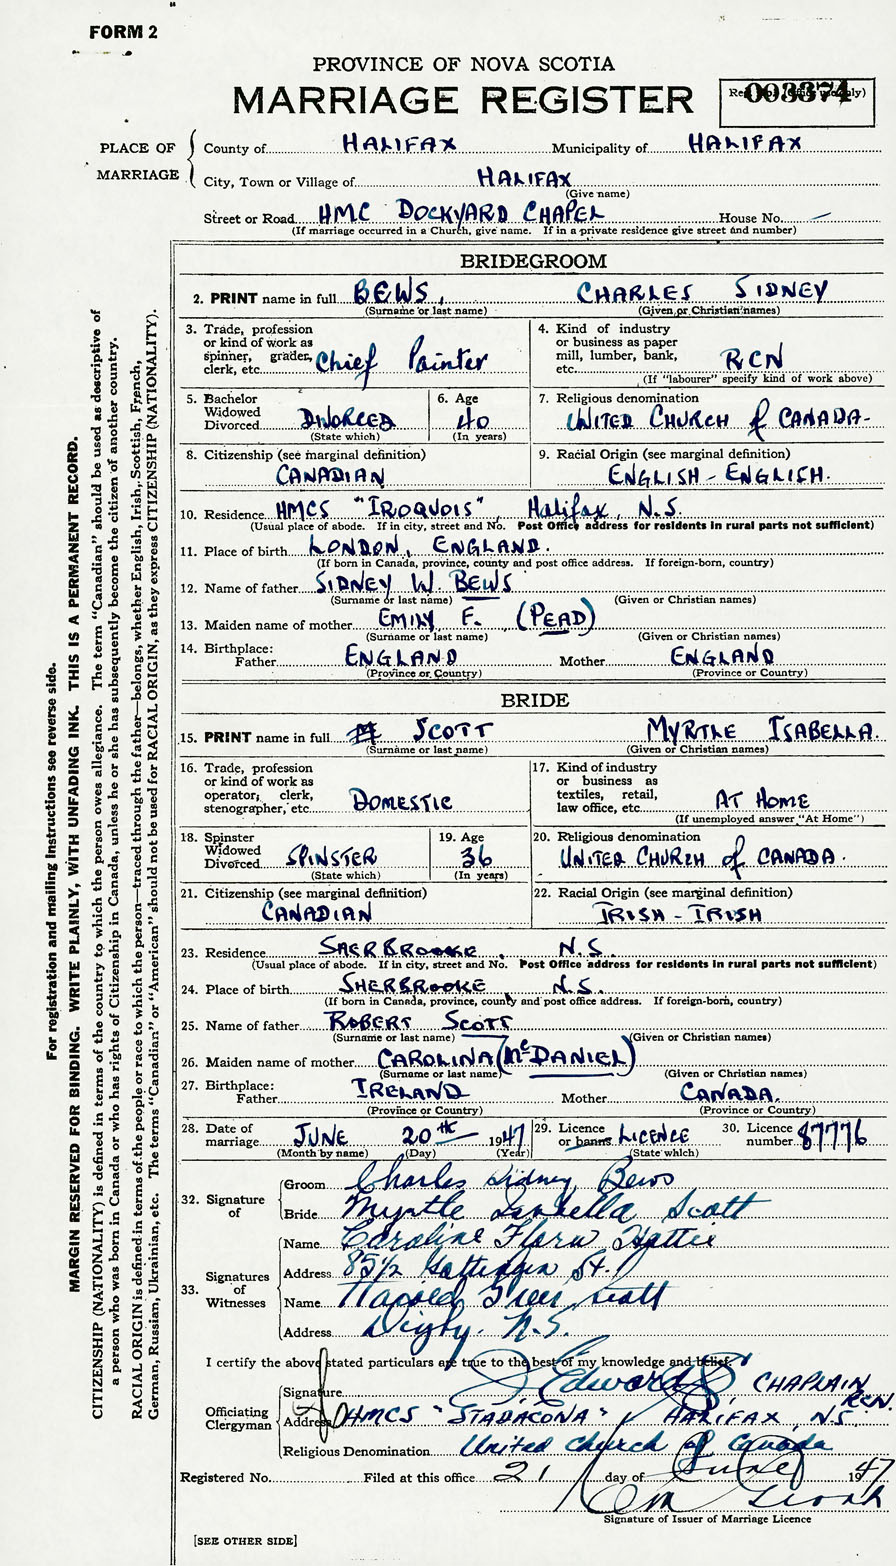 FORM 2
PROVINCE OF NOVA SCOTIA
MARRIAGE REGISTER
003374
PLACE OF MARRIAGE
County of HALIFAX Municipality of HALIFAX
City, Town or Village of HALIFAX
(Give name)
Street or Road HMC DOCKYARD CHAPEL House No. –
(If marriage occurred in a Church, give name. If in a private residence give street and number)
BRIDEGROOM
2. PRINT name in full BEWS, CHARLES SIDNEY
(Surname or last name) (Given or Christian names)
3. Trade, profession or kind of work as spinner, grader, clerk, etc. Chief Painter
4. Kind of industry or business as paper mill, lumber, bank, etc. RCN
(If "labourer" specify kind of work above)
5. Bachelor Widowed Divorced DIVORCED
(State which)
6. Age 40
(In years)
7. Religious denomination UNITED CHURCH of CANADA.
8. Citizenship (see marginal definition) CANADIAN
9. Racial Origin (see marginal definition) ENGLISH - ENGLISH.
10. Residence HMCS "IROQUOIS", Halifax, N.S.
(Usual place of abode. If in city, street and No. Post Office address for residents in rural parts not sufficient)
11. Place of birth LONDON, ENGLAND.
(If born in Canada, province, county and post office address. If foreign-born, country)
12. Name of father SIDNEY W. BEWS
(Surname or last name) (Given or Christian names)
13. Maiden name of mother EMILY F. (PEAD)
(Surname or last name) (Given or Christian names)
14. Birthplace: Father ENGLAND Mother ENGLAND
(Province or Country) (Province or Country)
BRIDE
15. PRINT name in full SCOTT MYRTLE ISABELLA.
(Surname or last name) (Given or Christian names)
16. Trade, profession or kind of work as operator, clerk, stenographer, etc. DOMESTIC
17. Kind of industry or business as textiles, retail, law office, etc. AT HOME
(If unemployed answer "At Home")
18. Spinster Widowed Divorced SPINSTER
(State which)
19. Age 36
(In years)
20. Religious denomination UNITED CHURCH of CANADA.
21. Citizenship (see marginal definition) CANADIAN
22. Racial Origin (see marginal definition) IRISH - IRISH
23. Residence SHERBROOKE, N.S.
(Usual place of abode. If in city, street and No. Post Office address for residents in rural parts not sufficient)
24. Place of birth SHERBROOKE N.S.
(If born in Canada, province, county and post office address. If foreign-born, country)
25. Name of father ROBERT SCOTT
(Surname or last name) (Given or Christian names)
26. Maiden name of mother CAROLINA (McDANIEL)
(Surname or last name) (Given or Christian names)
27. Birthplace: Father IRELAND Mother CANADA.
(Province or Country) (Province or Country)
28. Date of marriage JUNE 20th 1947
(Month by name) (Day) (Year)
29. Licence or banns LICENCE
(State which)
30. Licence number 87776
32. Signature of
Groom Charles Sidney Bews
Bride Myrtle Isabella Scott
33. Signatures of Witnesses
Name Caroline Flora Hattie
Address 85½ Gottingen St.
Name Harold Greer Scott
Address Digby. N.S.
I certify the above stated particulars are true to the best of my knowledge and belief.
Officiating Clergyman
Signature CHAPLAIN RCN.
Address HMCS "STADACONA" HALIFAX, N.S.
Religious Denomination United Church of Canada
Registered No. Filed at this office 21 day of June 1947
Signature of Issuer of Marriage Licence
[SEE OTHER SIDE]
For registration and mailing instructions see reverse side.
MARGIN RESERVED FOR BINDING. WRITE PLAINLY, WITH UNFADING INK. THIS IS A PERMANENT RECORD.
CITIZENSHIP (NATIONALITY) is defined in terms of the country to which the person owes allegiance. The term "Canadian" should be used as descriptive of
a person who was born in Canada or who has rights of Citizenship in Canada, unless he or she has subsequently become the citizen of another country.
RACIAL ORIGIN is defined in terms of the people or race to which the person—traced through the father—belongs, whether English, Irish, Scottish, French,
German, Russian, Ukrainian, etc. The terms "Canadian" or "American" should not be used for RACIAL ORIGIN, as they express CITIZENSHIP (NATIONALITY).